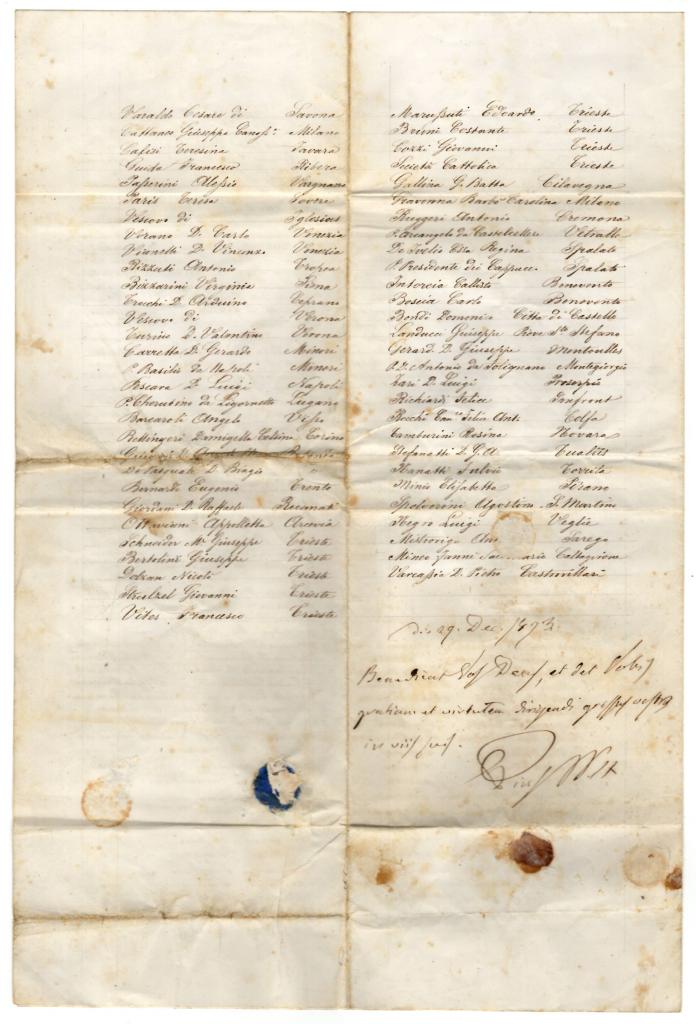 Varaldo Cesare di Savona
Cattaneo Giuseppe Milano
Teresina
Guida Francesco Ribera
Passerini Alessio Vargnano
Paris Teresa Lovere
Vescovo di Iglesias
Verano D. Carlo Venezia
Vianelli D. Vincenzo Venezia
Rizzuti Antonio Tropea
Bizzarini Virginia Roma
Trocchi D. Arduino Ceprano
Vescovo di Verona
Turrino D. Valentino Verona
Cavretta D. Gerardo Minori
P. Basilio da Napoli Minori
Pescara D. Luigi Napoli
P. Cherubino da Ligornetto Lugano
Barcaroli Angelo Visso
Bellingeri Damigella Torino
De Pasquale D. Biagio "
Bernardi Eugenio Trento
Giordani D. Raffaele Recanati
Ottaviani Appolletta Arcevia
Schneider Mr. Giuseppe Trieste
Bertolini Giuseppe Trieste
Dolzan Nicolò Trieste
Strulzel Giovanni Trieste
Vites Francesco Trieste
Marussuti Edoardo Trieste
Brioni Costante Trieste
Cozzi Giovanni Trieste
Società Cattolica Trieste
Gallina G. Batta Cilavegna
Carolina Milano
Ruggeri Antonio Cremona
P. Arcangelo da Castelcellere Vetralla
Regina Spalato
P. Presidente dei Cappucc. Spalato
Intorcia Callisto Benevento
Boscia Carlo Benevento
Bondi Domenico Città di Castello
Landucci Giuseppe Pieve Sto. Stefano
Gerard D. Giuseppe
P. Antonio da Polignano Montegiorgio
Zari D. Luigi
Richiardi Felice Front
Bocchi Can.co Felice Ant. Tolfa
Tamburini Rosina Novara
Stefanatti D. G.
Fulvio
Minio Elisabetta Pirano
Spolverini Agostino S. Martino
Negro Luigi Veglie
Sarego
Mineo Janni Caltagirone
Varcassia D. Pietro Castrovillari
Die 29. Dec. 1873.
Benedicat Vos Deus, et det Vobis
gratiam et virtutem dirigendi gressus vestros
in viis suis.
Pius PP. IX